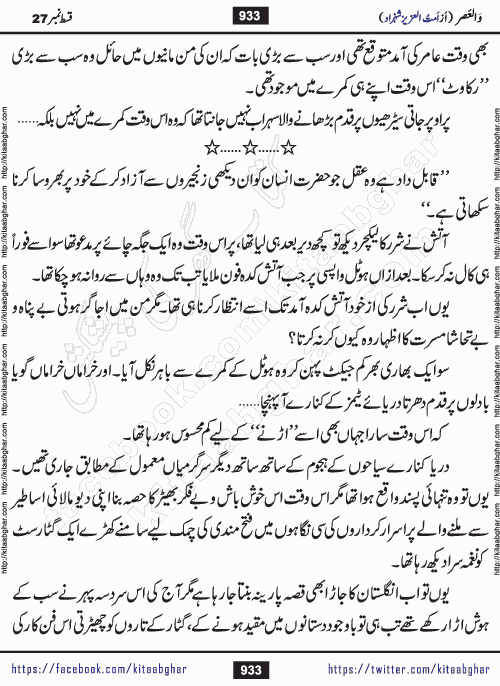 وَالعَصر (از اَمتُ العزیز شہزاد) 933 قسط نمبر 27
بھی وقت عامر کی آمد متوقع تھی اور سب سے بڑی بات کہ ان کی من مانیوں میں حائل وہ سب سے بڑی
’’رکاوٹ‘‘ اس وقت اپنے ہی کمرے میں موجود تھی۔
پر اوپر جاتی سیڑھیوں پر قدم بڑھانے والا سہراب نہیں جانتا تھا کہ وہ اس وقت کمرے میں نہیں بلکہ......
☆......☆......☆
’’قابل داد ہے وہ عقل جو حضرت انسان کو ان دیکھی زنجیروں سے آزاد کر کے خود پر بھروسا کرنا
سکھاتی ہے۔‘‘
آتش نے شرر کا لیکچر دیکھ تو کچھ دیر بعد ہی لیا تھا، پر اس وقت وہ ایک جگہ چائے پر مدعو تھا سو اسے فوراً
ہی کال نہ کر سکا۔ بعد ازاں ہوٹل واپسی پر جب آتش کدہ فون ملایا تب تک وہ وہاں سے روانہ ہو چکا تھا۔
یوں اب شرر کی از خود آتش کدہ آمد تک اسے انتظار کرنا ہی تھا۔ مگر من میں اجاگر ہوتی بے پناہ و
بے تحاشا مسرت کا اظہار وہ کیوں کر نہ کرتا؟
سو ایک بھاری بھر کم جیکٹ پہن کر وہ ہوٹل کے کمرے سے باہر نکل آیا۔ اور خراماں خراماں گویا
بادلوں پر قدم دھرتا دریائے ٹیمز کے کنارے آ پہنچا......
کہ اس وقت سارا جہاں بھی اسے ’’اڑنے‘‘ کے لیے کم محسوس ہو رہا تھا۔
دریا کنارے سیاحوں کے ہجوم کے ساتھ ساتھ دیگر سرگرمیاں معمول کے مطابق جاری تھیں۔
یوں تو وہ تنہائی پسند واقع ہوا تھا مگر اس وقت اس خوش باش و بے فکر بھیڑ کا حصہ بنا اپنی دیو مالائی اساطیر
سے ملنے والے پر اسرار کرداروں کی سی نگاہوں میں فتح مندی کی چمک لیے سامنے کھڑے ایک گٹارسٹ
کو نغمہ سرا دیکھ رہا تھا۔
یوں تو اب انگلستان کا جاڑا بھی قصہ پارینہ بنتا جا رہا ہے مگر آج کی اس سرد سہ پہر نے سب کے
ہوش اڑا رکھے تھے تب ہی تو باوجود دستانوں میں مقید ہونے کے، گٹار کے تاروں کو چھیڑتی اس فن کار کی
https://facebook.com/kitaabghar 933 https://twitter.com/kitaabghar
http://kitaabghar.com